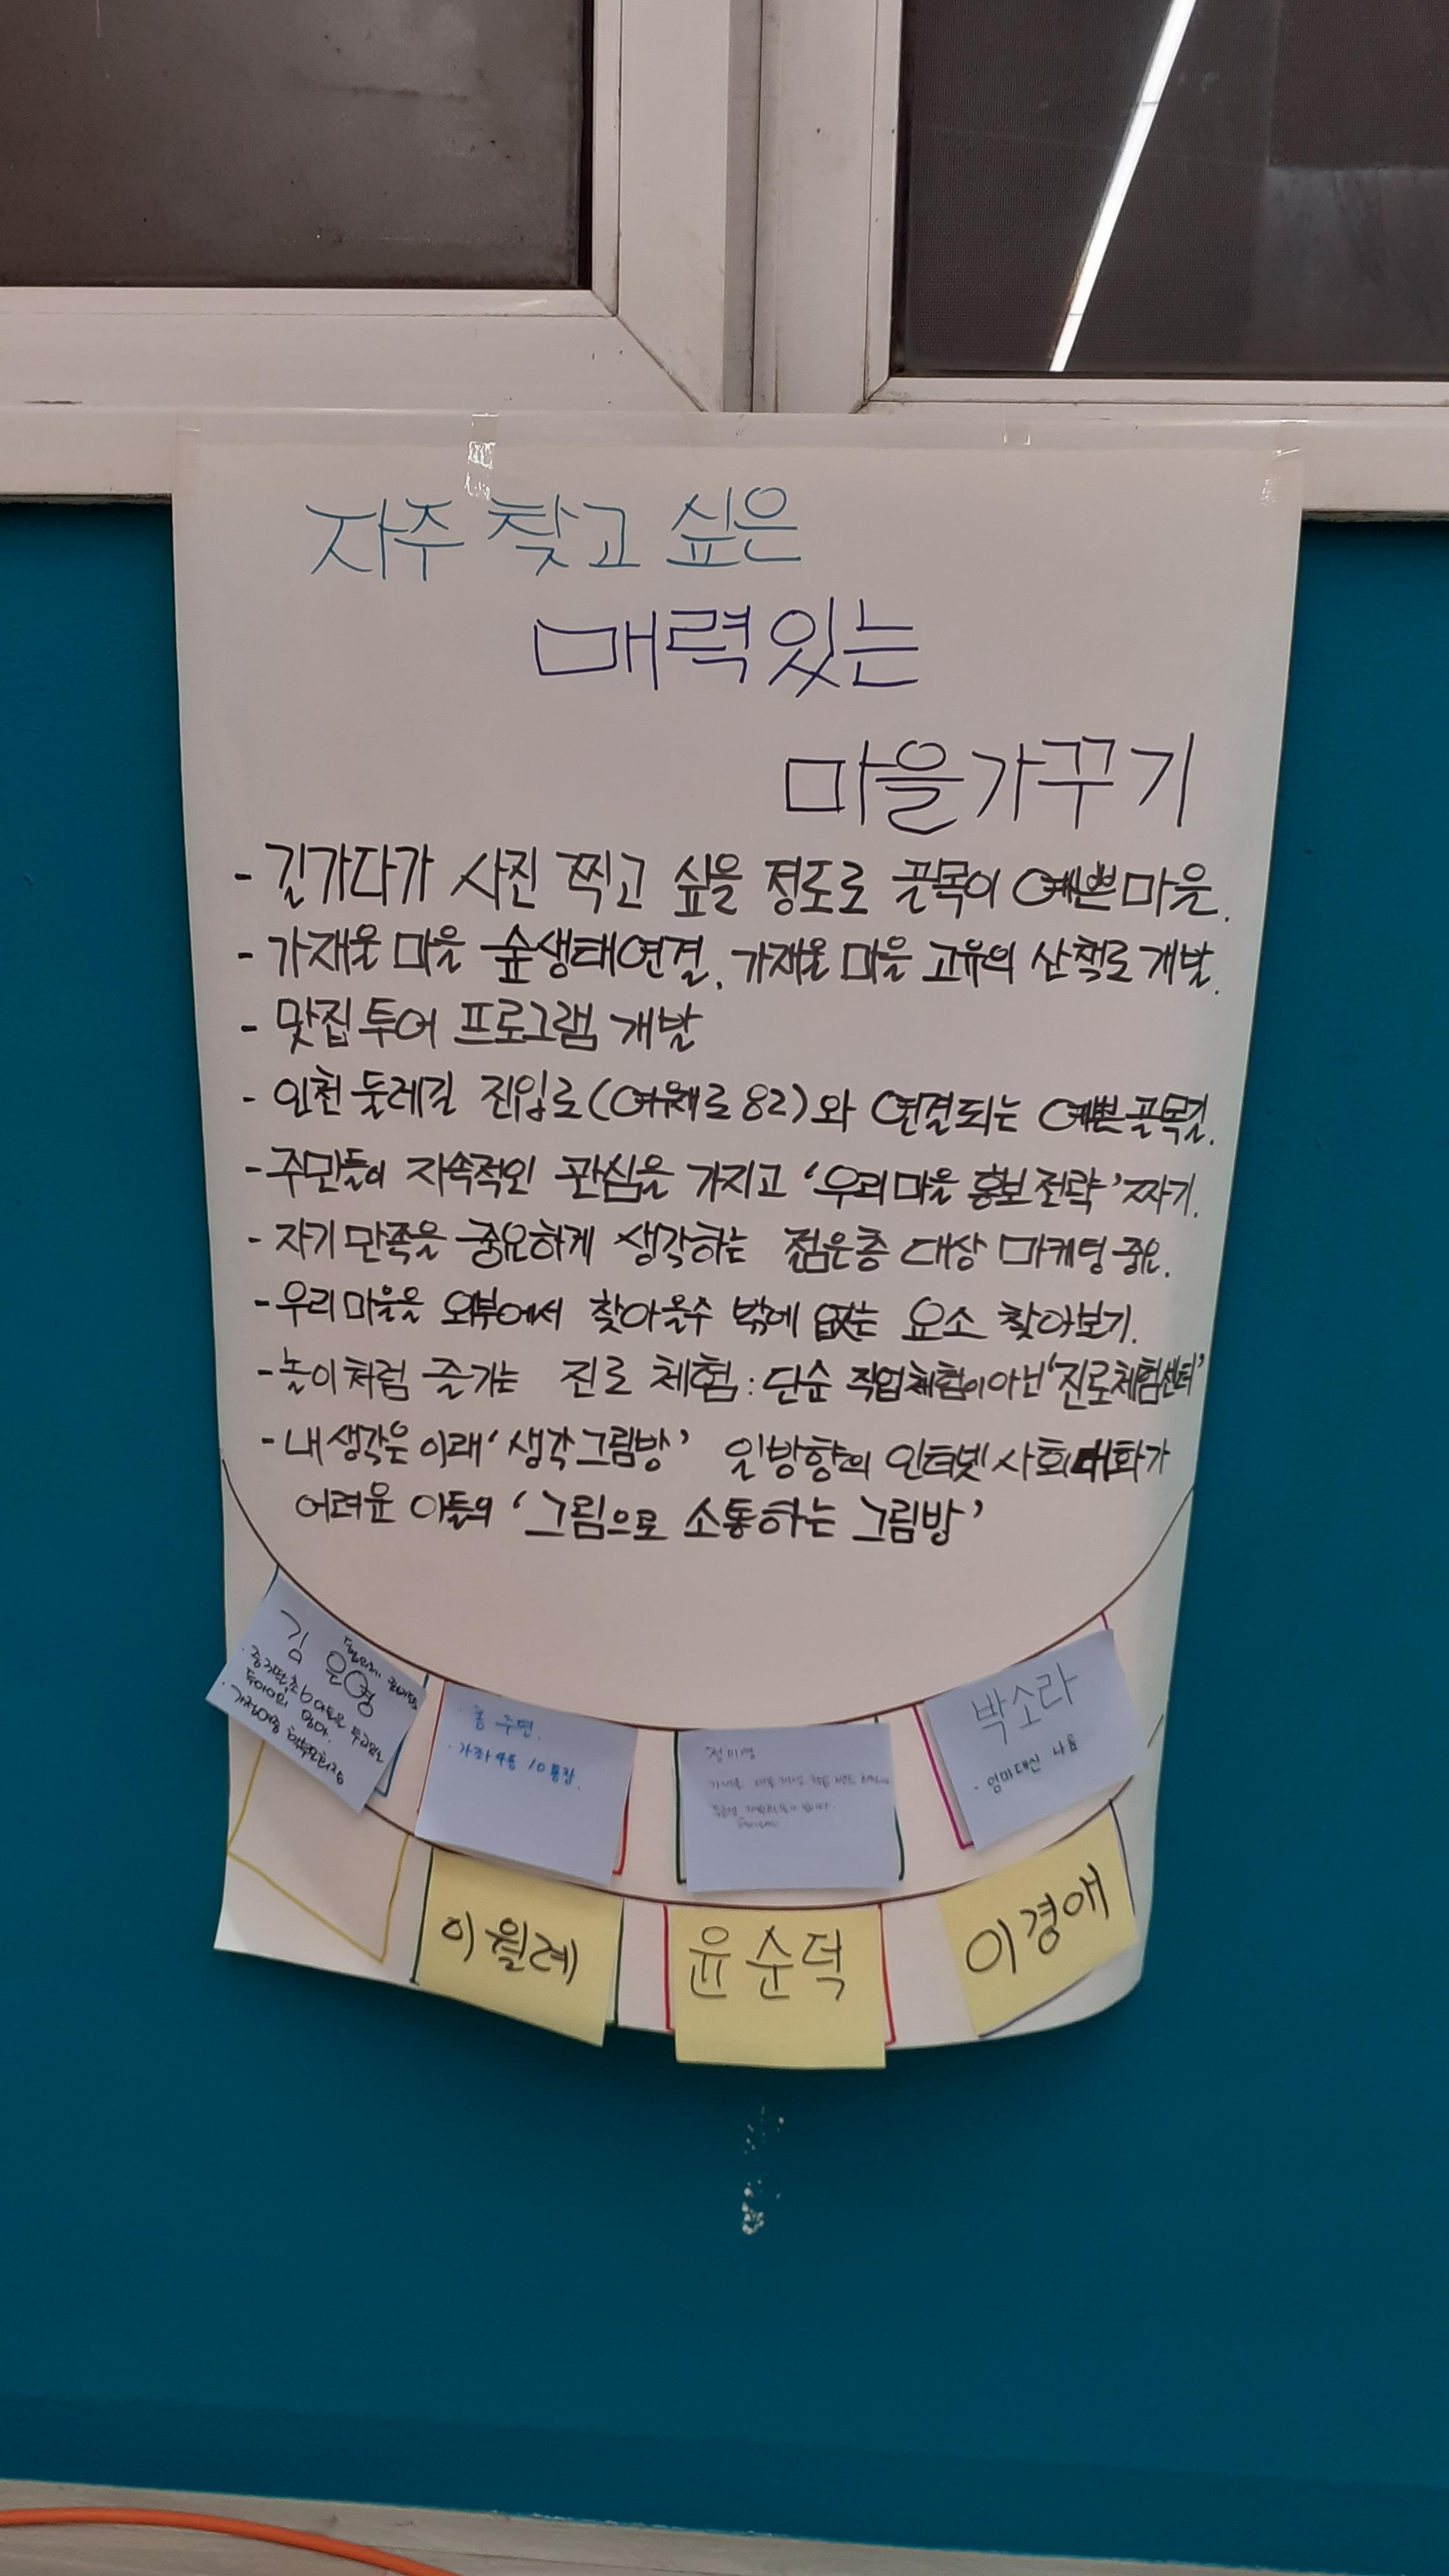 자주 찾고 싶은
매력있는
마을가꾸기
- 길가다가 사진 찍고 싶을 정도로 골목이 예쁜마을.
- 가재울 마을 숲생태연결, 가재울 마을 고유의 산책로 개발.
- 맛집 투어 프로그램 개발
- 인천 둘레길 진입로(여우재로 82)와 연결되는 예쁜골목길.
- 주민들이 지속적인 관심을 가지고 '우리마을 홍보전략' 짜기.
- 자기만족을 중요하게 생각하는 젊은층 대상 마케팅 중요.
- 우리마을을 외부에서 찾아올수 밖에 없는 요소 찾아보기.
- 놀이처럼 즐기는 진로 체험 : 단순 직업체험이 아닌 '진로체험센터'
- 내 생각은 이래 '생각그림방' 일방향의 인터넷사회 대화가
어려운 이들의 '그림으로 소통하는 그림방'
김은영
홍주연
· 가좌4동 10통장.
정미영
박소라
· 엄마대신 나옴
이월례
윤순덕
이경애